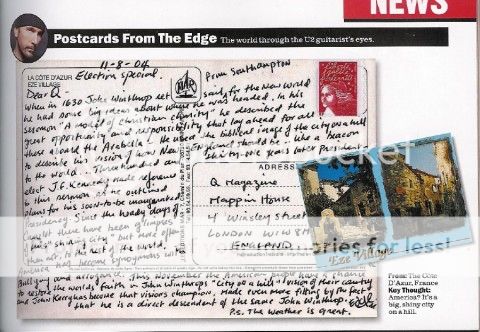 NEWS
Postcards From The Edge The world through the U2 guitarist's eyes.
11-8-04
LA CÔTE D'AZUR
EZE VILLAGE
Election special.
Dear Q
When in 1630 John Winthrop set
sail for the New World
from Southampton
he had some big ideas about where he was headed. In his
sermon "A model of Christian charity" he described the
great opportunity and responsibility that lay ahead for all
those aboard the Arabella. He used the biblical image of the city on a hill
to describe his vision of how New England should be: like a beacon
to the world. Three hundred and thirty-one years later President
elect J.F. Kennedy made reference
to this sermon as he outlined
plans for his soon-to-be inaugurated
Presidency. Since the heady days of
Camelot there have been glimpses of
this "shining city" but more often
than not, to the rest of the world,
America had become synonymous with
bullying and arrogance. This November the American public have a chance
to restore the worlds' faith in John Winthrops "city on a hill" vision of their country
Can John Kerry become that visions champion, made even more fitting by the fact
that he is a direct descendent of the same John Winthrop. Edge
P.s. The weather is great.
ADRESSE
Q Magazine
Mappin House
4 Winsley Street
LONDON W1W
ENGLAND
Eze Village
From: The Côte
D'Azur, France
Key Thought:
America? It's a
big, shiny city
on a hill.